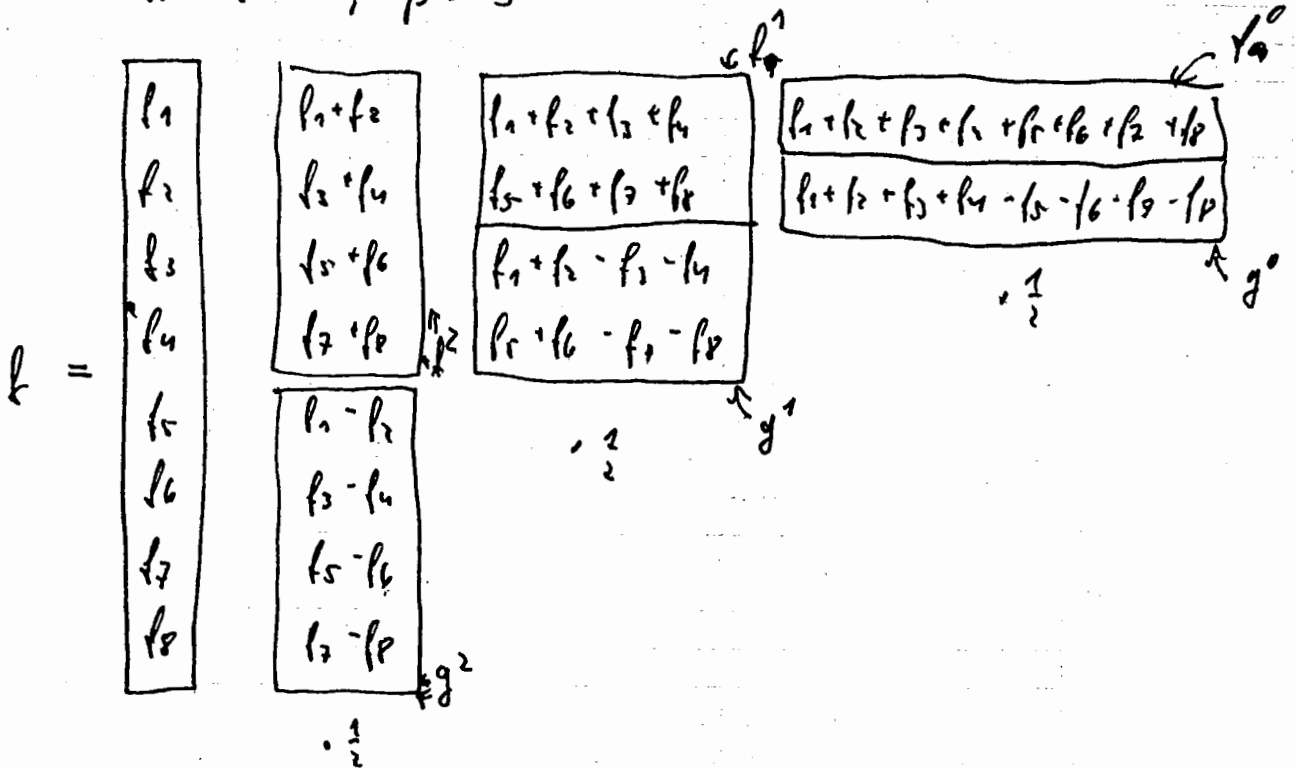 f =
f1
f2
f3
f4
f5
f6
f7
f8
f1 + f2
f3 + f4
f5 + f6
f7 + f8
f²
f1 - f2
f3 - f4
f5 - f6
f7 - f8
g²
· 1/2
f¹
f1 + f2 + f3 + f4
f5 + f6 + f7 + f8
f1 + f2 - f3 - f4
f5 + f6 - f7 - f8
g¹
· 1/2
f1 + f2 + f3 + f4 + f5 + f6 + f7 + f8
f1 + f2 + f3 + f4 - f5 - f6 - f7 - f8
g⁰
· 1/2